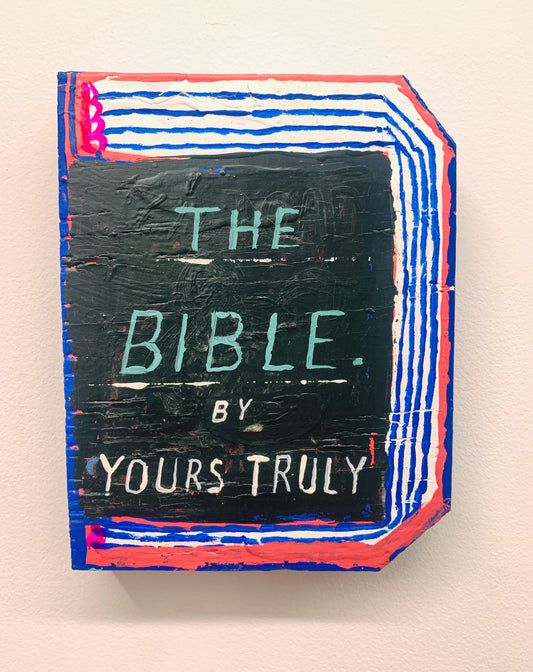 THE
BIBLE.
BY
YOURS TRULY